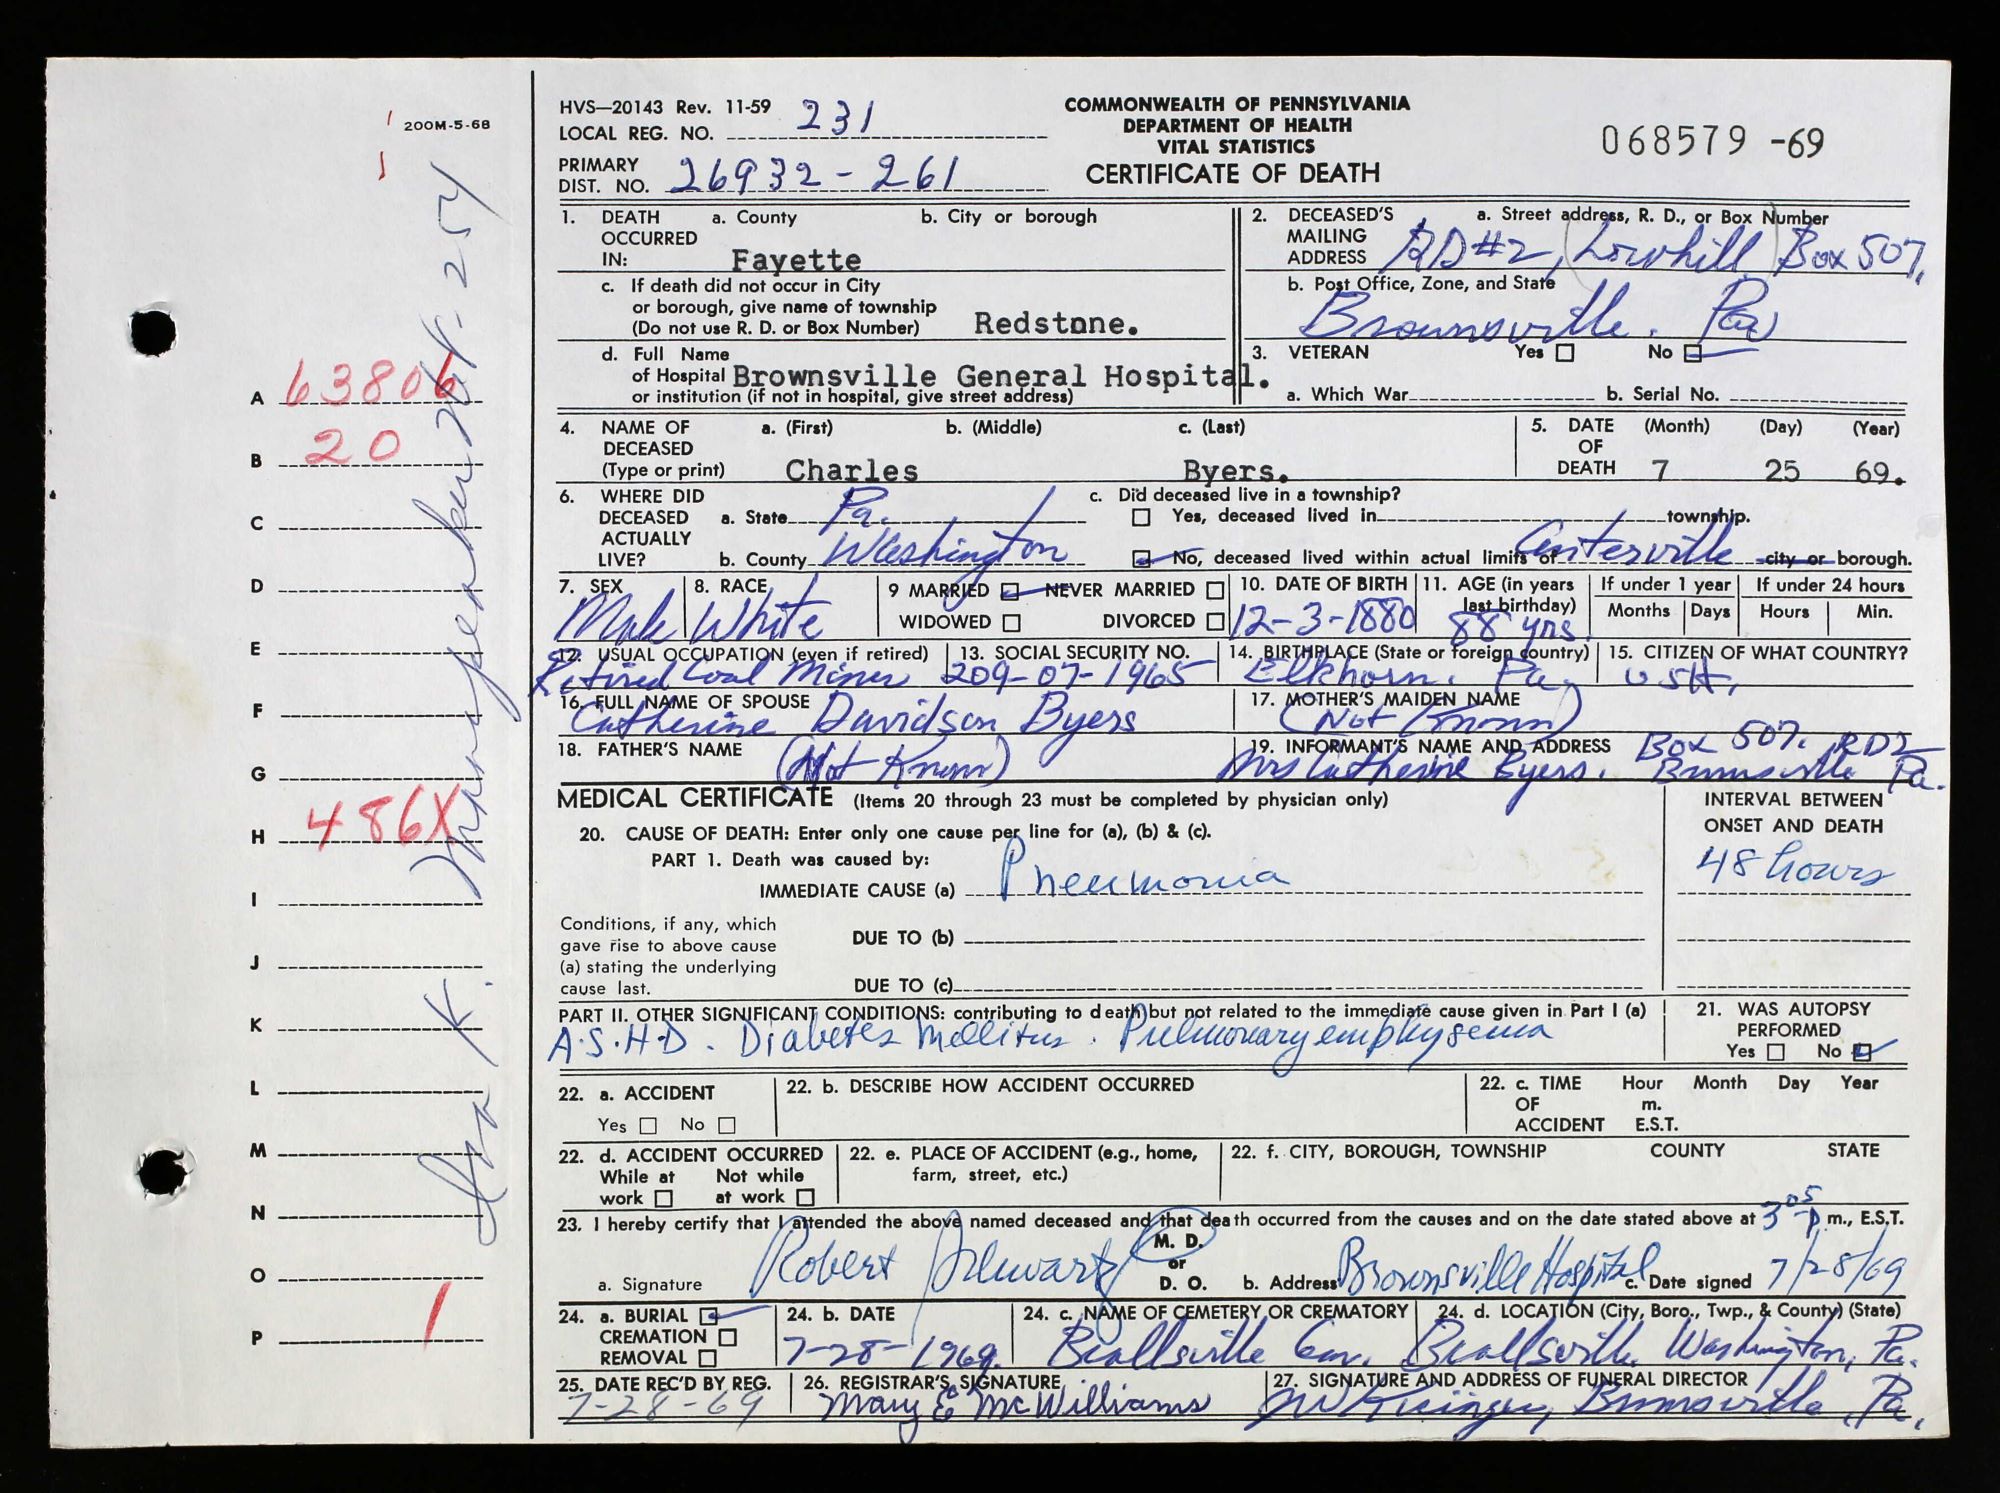 200M-5-68
HVS—20143 Rev. 11-59
LOCAL REG. NO. 231
PRIMARY
DIST. NO. 26932-261
COMMONWEALTH OF PENNSYLVANIA
DEPARTMENT OF HEALTH
VITAL STATISTICS
CERTIFICATE OF DEATH
068579 -69
1. DEATH OCCURRED IN: a. County Fayette b. City or borough
c. If death did not occur in City
or borough, give name of township
(Do not use R. D. or Box Number) Redstone.
d. Full Name
of Hospital Brownsville General Hospital.
or institution (if not in hospital, give street address)
2. DECEASED'S MAILING ADDRESS a. Street address, R. D., or Box Number
RD#2, Lowhill Box 507,
b. Post Office, Zone, and State
Brownsville. Pa
3. VETERAN Yes No
a. Which War b. Serial No.
4. NAME OF DECEASED (Type or print) a. (First) b. (Middle) c. (Last)
Charles Byers.
5. DATE OF DEATH (Month) (Day) (Year)
7 25 69.
6. WHERE DID DECEASED ACTUALLY LIVE? a. State Pa.
b. County Washington
c. Did deceased live in a township?
Yes, deceased lived in township.
No, deceased lived within actual limits of Centerville city or borough.
7. SEX Male
8. RACE White
9 MARRIED NEVER MARRIED
WIDOWED DIVORCED
10. DATE OF BIRTH 12-3-1880
11. AGE (in years last birthday) 88 yrs.
If under 1 year Months Days
If under 24 hours Hours Min.
12. USUAL OCCUPATION (even if retired) Retired Coal Miner
13. SOCIAL SECURITY NO. 209-07-1965
14. BIRTHPLACE (State or foreign country) Elkhorn. Pa.
15. CITIZEN OF WHAT COUNTRY? USA.
16. FULL NAME OF SPOUSE Catherine Davidson Byers
17. MOTHER'S MAIDEN NAME (Not Known)
18. FATHER'S NAME (Not Known)
19. INFORMANT'S NAME AND ADDRESS Box 507. RD2
Mrs Catherine Byers. Brownsville Pa.
MEDICAL CERTIFICATE (Items 20 through 23 must be completed by physician only)
INTERVAL BETWEEN ONSET AND DEATH
20. CAUSE OF DEATH: Enter only one cause per line for (a), (b) & (c).
PART 1. Death was caused by:
IMMEDIATE CAUSE (a) Pneumonia 48 hours
Conditions, if any, which
gave rise to above cause
(a) stating the underlying
cause last.
DUE TO (b)
DUE TO (c)
PART II. OTHER SIGNIFICANT CONDITIONS: contributing to death but not related to the immediate cause given in Part I (a)
A.S.H.D. Diabetes Mellitus. Pulmonary emphysema
21. WAS AUTOPSY PERFORMED
Yes No
22. a. ACCIDENT
Yes No
22. b. DESCRIBE HOW ACCIDENT OCCURRED
22. c. TIME OF ACCIDENT Hour Month Day Year
m.
E.S.T.
22. d. ACCIDENT OCCURRED
While at work Not while at work
22. e. PLACE OF ACCIDENT (e.g., home, farm, street, etc.)
22. f. CITY, BOROUGH, TOWNSHIP COUNTY STATE
23. I hereby certify that I attended the above named deceased and that death occurred from the causes and on the date stated above at 3 05 p m., E.S.T.
a. Signature Robert Schwartz M. D. or D. O. b. Address Brownsville Hospital c. Date signed 7/28/69
24. a. BURIAL
CREMATION
REMOVAL
24. b. DATE
7-28-1969.
24. c. NAME OF CEMETERY OR CREMATORY
Beallsville Cem.
24. d. LOCATION (City, Boro., Twp., & County) (State)
Beallsville, Washington, Pa.
25. DATE REC'D BY REG.
7-28-69
26. REGISTRAR'S SIGNATURE
Mary E McWilliams
27. SIGNATURE AND ADDRESS OF FUNERAL DIRECTOR
Brownsville, Pa.
A 63806
B 20
C
D
E
F
G
H 486X
I
J
K
L
M
N
O
P 1
Ira K.